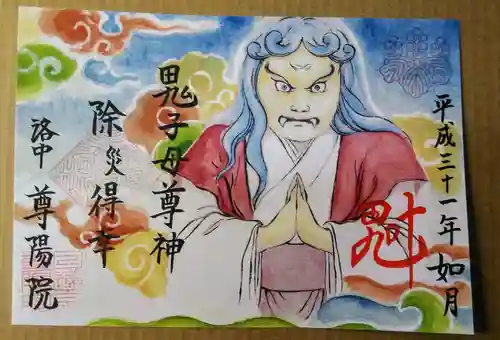 平成三十一年如月
鬼子母尊神
除災得幸
洛中 尊陽院